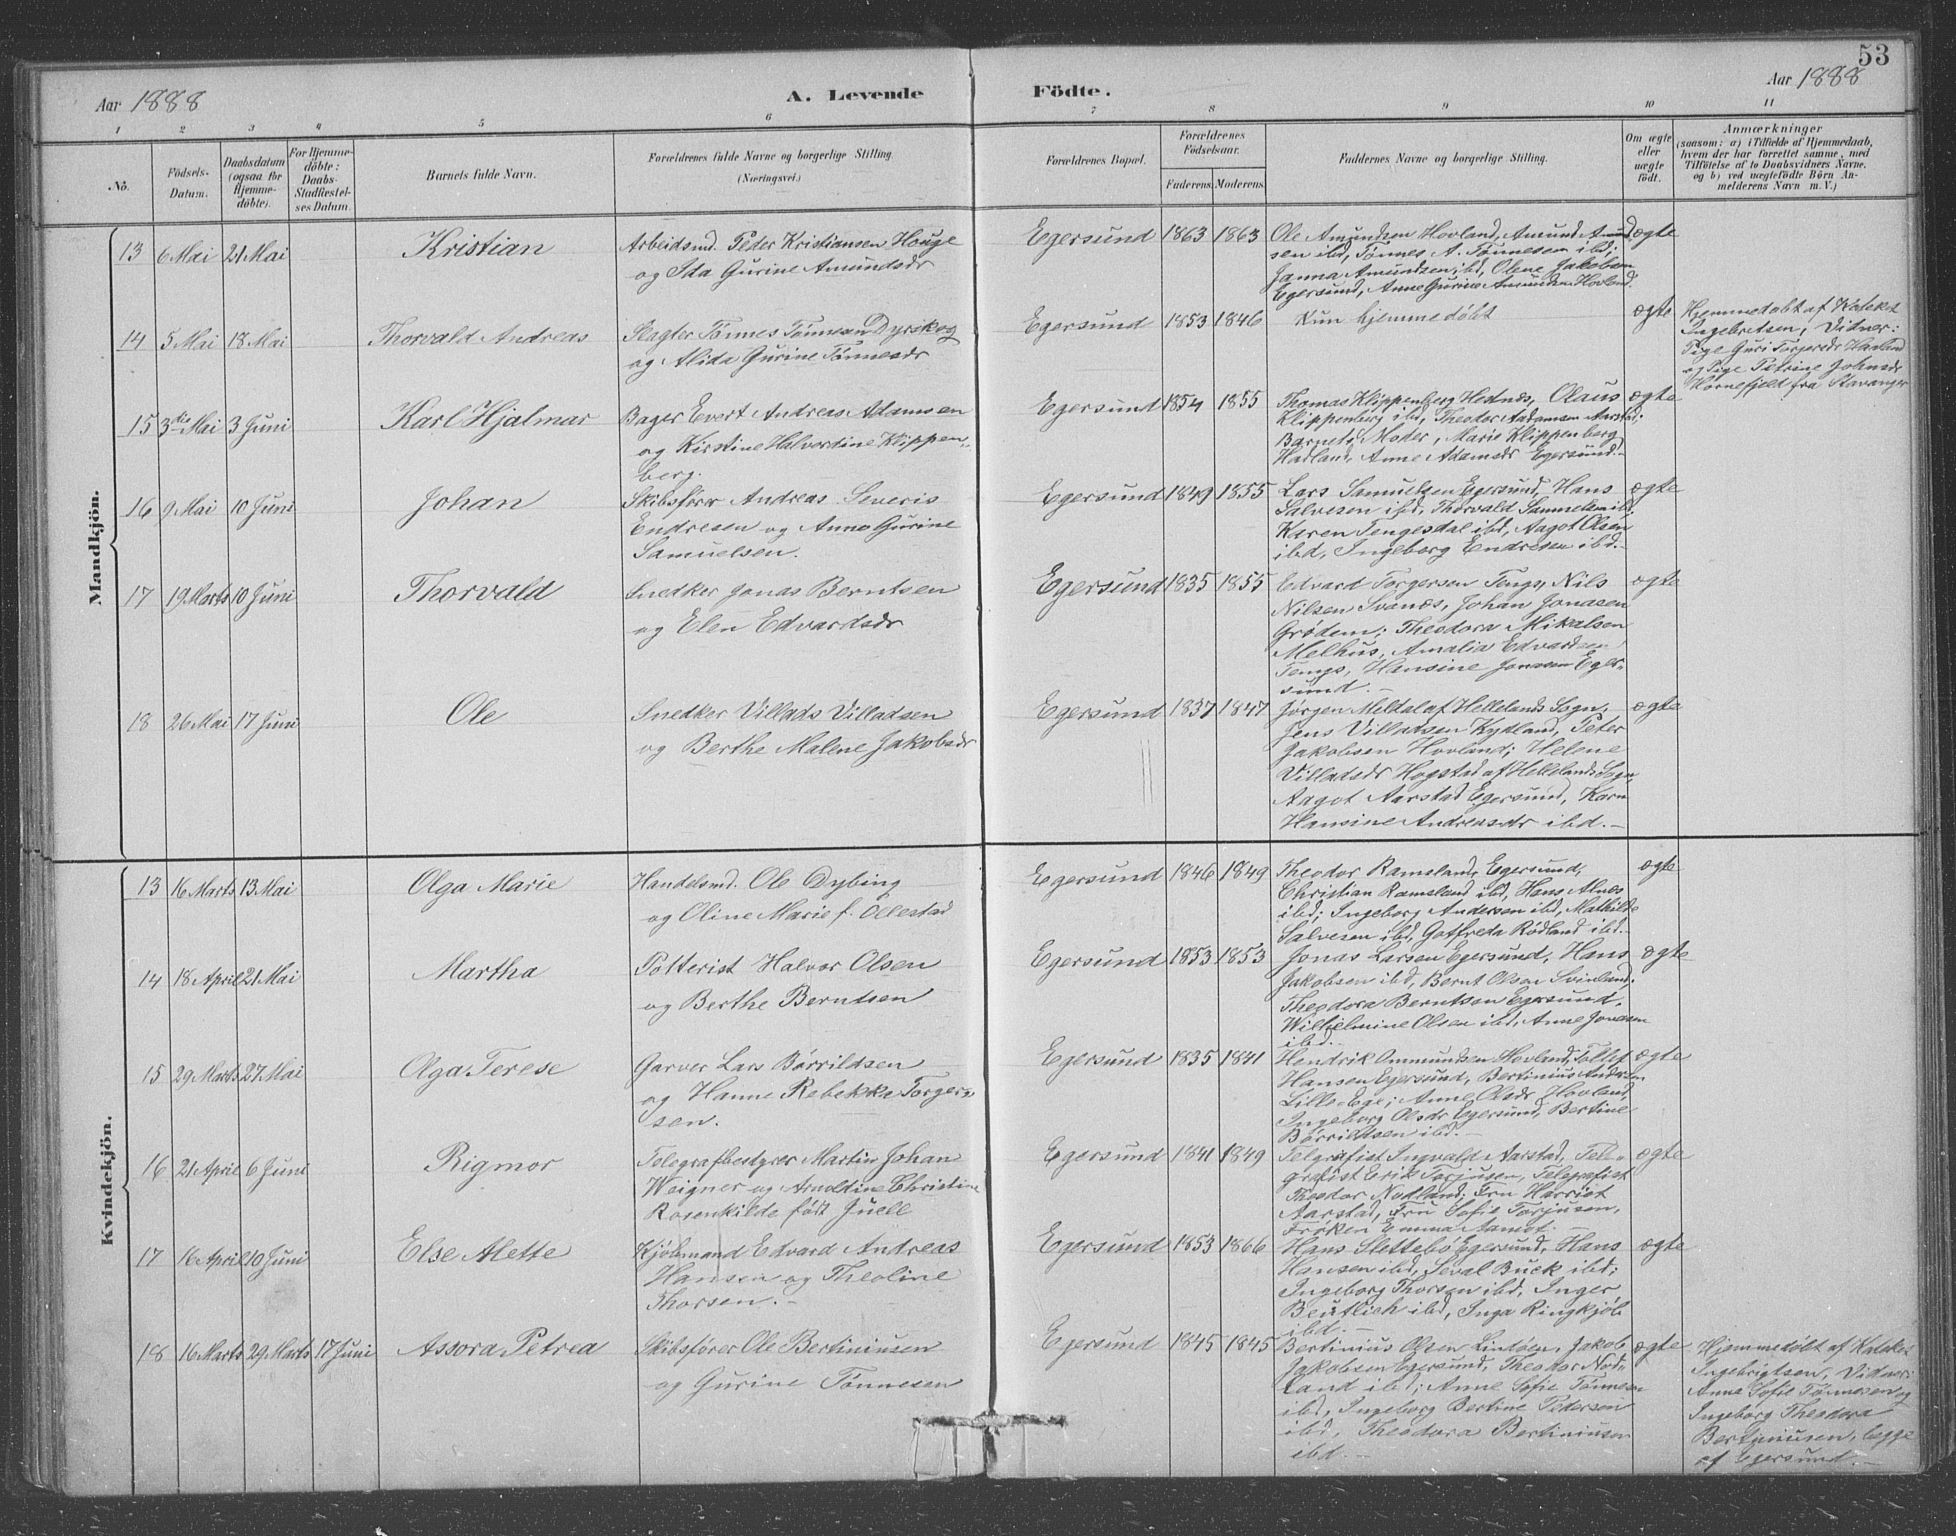 53
Aar 1888
A. Levende Födte.
Aar 1888
1 2 3 4 5 6 7 8 9 10 11
No.
Födsels-Datum.
Daabsdatum (ogsaa for Hjemmedöbte).
For Hjemmedöbte: Daabs-Stadfæstelses Datum.
Barnets fulde Navn.
Forældrenes fulde Navne og borgerlige Stilling.
(Næringsvei.)
Forældrenes Bopæl.
Forældrenes Födselsaar.
Faderens. Moderens.
Faddernes Navne og borgerlige Stilling.
Om ægte eller uægte födt.
Anmærkninger
(saasom: a) i Tilfælde af Hjemmedaab,
hvem der har forrettet samme, med
Tilföielse af to Daabsvidners Navne,
og b) ved uægtefödte Börn An-
melderens Navn m. V.)
Mandkjön.
13 6 Mai 21 Mai Kristian
Arbeidsmd. Peder Kristiansen Houge
og Ida Gurine Amundsdr
Egersund 1863 1863
Ole Amundsen Hovland, Amund Amund
sen ibd, Tönnes A. Tönnesen ibd;
Janna Amundsen ibd, Olene Jakobsen
Egersund, Anne Gurine Amundsen Hovland.
ægte
14 5 Mai 18 Mai Thorvald Andreas
Slagter Tönnes Tönnesen Dyrskog
og Alida Gurine Tönnesdr
Egersund 1853 1846
Kun hjemmedøbt
ægte
Hjemmedøbt af Kateket
Ingebretsen; Vidner:
Pige Guri Torgersdr Havland
og Pige Petrine Johnsdr
Hornefjeld fra Stavanger
15 3die Mai 3 Juni Karl Hjalmar
Bager Evert Andreas Adamsen
og Kirstine Halvordine Klippen-
berg.
Egersund 1854 1855
Thomas Klippenberg Hednæs, Olaus
Klippenberg ibd, Theodor Adamsen Aarstad;
Barnets Moder, Marie Klippenberg
Hadland, Anne Adamsdr Egersund.
ægte
16 9 Mai 10 Juni Johan
Skibsfører Andreas Severis
Endresen og Anne Gurine
Samuelsen.
Egersund 1849 1855
Lars Samuelsen Egersund, Hans
Salvesen ibd, Thorvald Samuelsen ibd,
Karen Tengesdal ibd, Aagot Olsen
ibd, Ingeborg Endresen ibd.
ægte
17 19 Marts 10 Juni Thorvald
Snedker Jonas Berntsen
og Elen Edvardsdr
Egersund 1835 1855
Edvard Torgersen Tengs, Nils
Nilsen Svanæs, Johan Jonasen
Grødem; Theodora Mikalsen
Melhus, Amalia Edvardsen
Tengs, Hansine Jonasen Eger-
sund.
ægte
18 26 Mai 17 Juni Ole
Snedker Villads Villadsen
og Berthe Malene Jakobsdr
Egersund 1837 1847
Jørgen Meldal af Hellelands Sogn,
Jens Villadsen Kydland, Peter
Jakobsen Hovland; Helene
Villadsdr Hogstad af Hellelands Sogn,
Aagot Aarstad Egersund, Karn
Hansine Andreasdr ibd.
ægte
Kvindekjön.
13 16 Marts 13 Mai Olga Marie
Handelsmd. Ole Dybing
og Oline Marie f. Ollestad
Egersund 1846 1849
Theodor Ramsland, Egersund,
Christian Ramsland ibd, Hans Alnæs
ibd; Ingeborg Andersen ibd, Mathilde
Salvesen ibd, Gotfreda Rødland ibd.
ægte
14 18 April 21 Mai Martha
Potterist Halvor Olsen
og Berthe Berntsen
Egersund 1853 1853
Jonas Larsen Egersund, Hans
Jakobsen ibd, Bernt Olsen Svinland;
Theodora Berntsen Egersund,
Wilhelmine Olsen ibd, Anne Jonesen
ibd.
ægte
15 29 Marts 27 Mai Olga Terese
Garver Lars Børrildsen
og Hanne Rebekka Torger-
sen.
Egersund 1835 1841
Hendrik Ommundsen Hovland, Tollef
Hansen Egersund, Bertinius Andersen
Lille-Ege; Anne Olsdr Hovland,
Ingeborg Olsdr Egersund, Bertine
Børrildsen ibd.
ægte
16 21 April 6 Juni Rigmor
Telegrafbestyrer Martin Johan
Weigner og Arnoldine Christine
Rosenkilde født Juell
Egersund 1841 1849
Telegrafist Ingvald Aarstad, Tele-
grafist Erik Torjusen, Telegrafist
Theodor Nodland; Fru Harriet
Aarstad, Fru Sofie Torjusen,
Frøken Emma Aamot.
ægte
17 16 April 10 Juni Else Alette
Kjøbmand Edvard Andreas
Hansen og Theoline
Thorsen.
Egersund 1853 1866
Hans Slettebö Egersund, Hans
Hansen ibd, Seval Buck ibd;
Ingeborg Thorsen ibd, Inger
Beutlich ibd, Inga Ringkjöb
ibd.
ægte
18 16 Marts 29 Marts 17 Juni Assora Petrea
Skibsfører Ole Bertiniusen
og Gurine Tönnesen
Egersund 1845 1845
Bertinius Olsen Lindöen, Jakob
Jakobsen Egersund, Theodor Nod-
land ibd; Anne Sofie Tönnesen
ibd, Ingeborg Bertine Pedersen
ibd, Theodora Bertiniusen
ibd.
ægte
Hjemmedøbt af Kateket
Ingebrigtsen, Vidner:
Anne Sofie Tönnesen og
Ingeborg Theodora
Bertiniusen, begge
af Egersund.